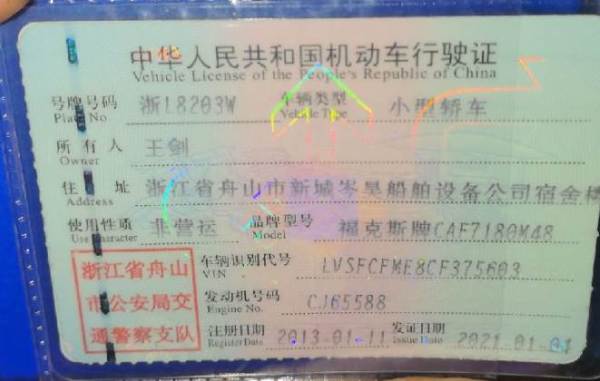 中华人民共和国机动车行驶证
Vehicle License of the People's Republic of China
号牌号码 浙L8203W 车辆类型 小型轿车
Plate No Vehicle Type
所有人 王剑
Owner
住址 浙江省舟山市新城岑昊船舶设备公司宿舍楼
Address
使用性质 非营运 品牌型号 福克斯牌CAF7180M48
Use Character Model
浙江省舟山
市公安局交
通警察支队
车辆识别代号 LVSFCFME8CF375603
VIN
发动机号码 CJ65588
Engine No.
注册日期 2013-01-11 发证日期 2021-01-01
Register Date Issue Date